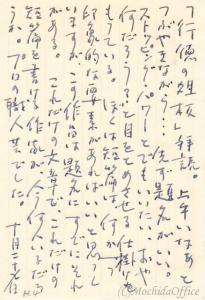 「行徳の俎板」拝読。上手いなあと
つぶやきながら…。先ず題名がいい。
ストッピング・パワーとでもいいたい、おや
何だろう？と目をとめさせる仕掛を
もっている。ぼくは短篇は、何か一つ
印象的な要素があればいいと思うし
この作品は題名にすでにそれ
がある。これだけの文章で、これだけの
短篇を書ける作家が、今、何人いるだろ
うか。プロの職人芸でした。
十月二十五日
©MochidaOffice